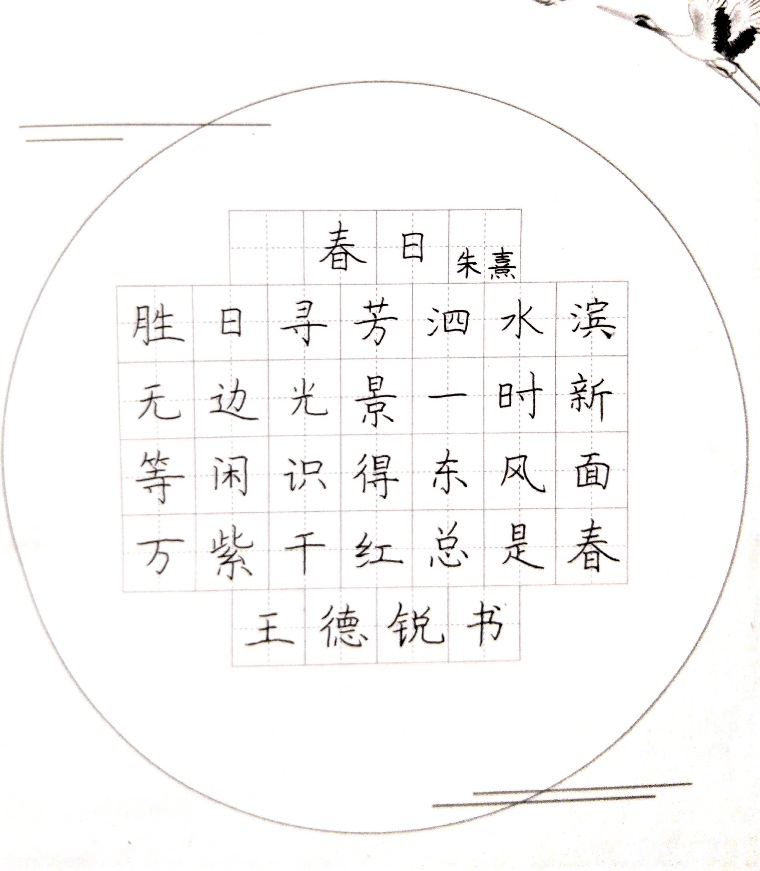 春日 朱熹
胜日寻芳泗水滨
无边光景一时新
等闲识得东风面
万紫千红总是春
王德锐书